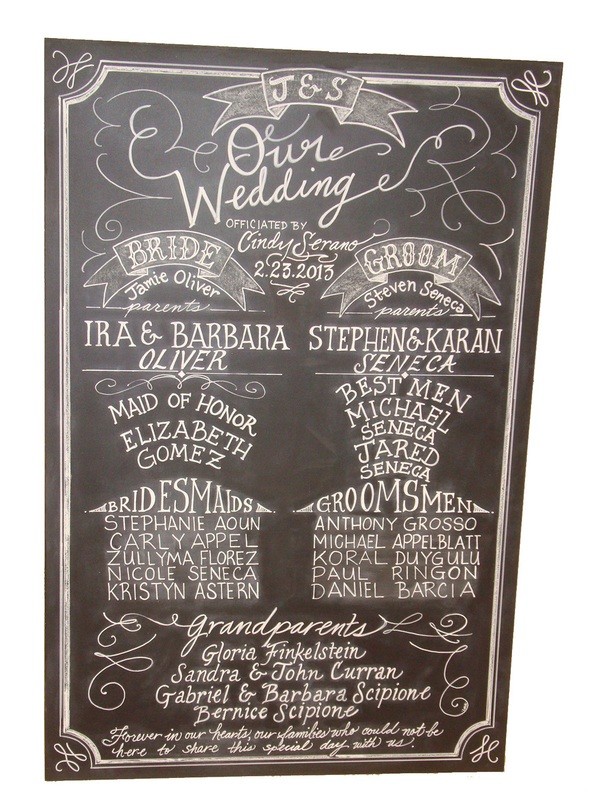 J & S
Our
Wedding
OFFICIATED BY
Cindy Serano
2.23.2013
BRIDE
Jamie Oliver
parents
IRA & BARBARA
OLIVER
MAID OF HONOR
ELIZABETH
GOMEZ
BRIDESMAIDS
STEPHANIE AOUN
CARLY APPEL
ZULLYMA FLOREZ
NICOLE SENECA
KRISTYN ASTERN
GROOM
Steven Seneca
parents
STEPHEN & KARAN
SENECA
BEST MEN
MICHAEL
SENECA
JARED
SENECA
GROOMSMEN
ANTHONY GROSSO
MICHAEL APPELBLATT
KORAL DUYGULU
PAUL RINGON
DANIEL BARCIA
Grandparents
Gloria Finkelstein
Sandra & John Curran
Gabriel & Barbara Scipione
Bernice Scipione
Forever in our hearts, our families who could not be
here to share this special day with us.